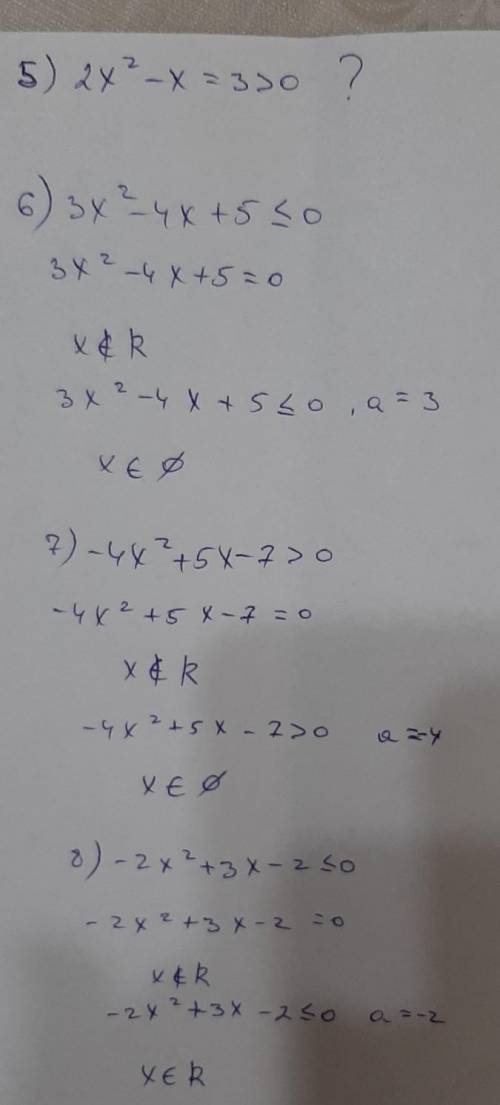 5) 2x² - x = 3 > 0 ?
6) 3x² - 4x + 5 ≤ 0
3x² - 4x + 5 = 0
x ∉ R
3x² - 4x + 5 ≤ 0, a = 3
x ∈ ∅
7) -4x² + 5x - 7 > 0
-4x² + 5x - 7 = 0
x ∉ R
-4x² + 5x - 7 > 0 a = -4
x ∈ ∅
8) -2x² + 3x - 2 ≤ 0
-2x² + 3x - 2 = 0
x ∉ R
-2x² + 3x - 2 ≤ 0 a = -2
x ∈ R